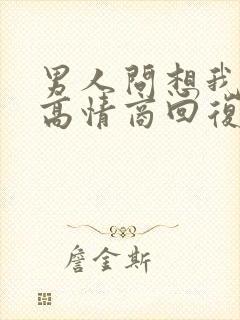 男人問想我
高情商回復
詹金斯